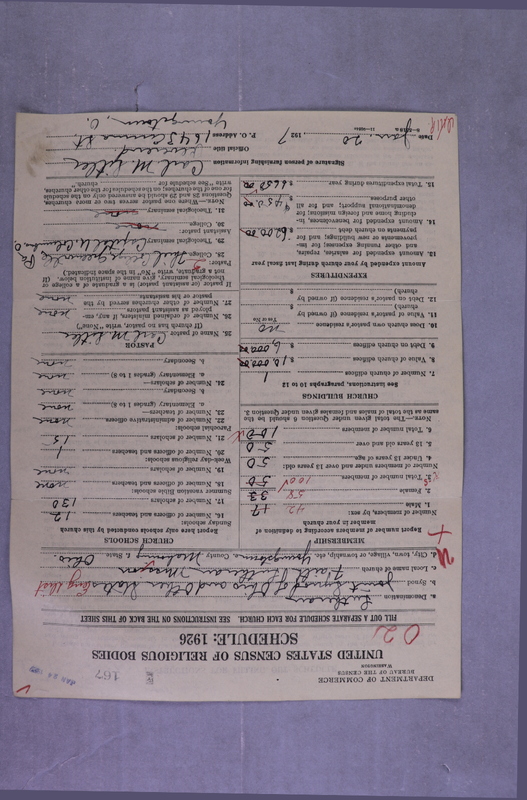 DEPARTMENT OF COMMERCE
BUREAU OF THE CENSUS
WASHINGTON
167
UNITED STATES CENSUS OF RELIGIOUS BODIES
SCHEDULE: 1926
FILL OUT A SEPARATE SCHEDULE FOR EACH CHURCH. SEE INSTRUCTIONS ON THE BACK OF THIS SHEET
a. Denomination Lutheran
b. Synod of Joint Synod of Ohio and Other States
c. Local name of church Faith Lutheran Mission
d. City, town, village, or township, etc. Youngstown, County Mahoning, State Ohio.
MEMBERSHIP
Report members according to definition of
member in your church
Number of members, by sex:
1. Male 17 42
2. Female 33 58
3. Total number of members 50 100
Number of members under and over 13 years old:
4. Under 13 years of age 50
5. 13 years old and over 50
6. Total number of members 100
Note.—The total given under Question 6 should be the
same as the total of males and females given under Question 3.
CHURCH BUILDINGS
See Instructions, paragraphs 10 to 12
7. Number of church edifices 1
8. Value of church edifices $ 10,000.00
9. Debt on church edifices $ 6,000.00
10. Does church own pastor's residence no
(Yes or No)
11. Value of pastor's residence (if owned by
church) $
12. Debt on pastor's residence (if owned by
church) $
EXPENDITURES
Amount expended by your church during last fiscal year
13. Amount expended for salaries, repairs,
and other running expenses; for im-
provements or new buildings; and for
payments on church debt $ 6200.00
14. Amount expended for benevolences, in-
cluding home and foreign missions; for
denominational support; and for all
other purposes $ 450.00
15. Total expenditures during year $ 6650.00
CHURCH SCHOOLS
Report here only schools conducted by this church
Sunday schools:
16. Number of officers and teachers 12
17. Number of scholars 130
Summer vacation Bible schools:
18. Number of officers and teachers none
19. Number of scholars none
Week-day religious schools:
20. Number of officers and teachers 1
21. Number of scholars 15
Parochial schools:
22. Number of administrative officers none
23. Number of teachers—
a. Elementary (grades 1 to 8) none
b. Secondary none
24. Number of scholars—
a. Elementary (grades 1 to 8) none
b. Secondary none
PASTOR
25. Name of pastor Carl M. Hitler
(If church has no pastor, write "None")
26. Number of ordained ministers, if any, em-
ployed as assistant pastors none
27. Number of other churches served by the
pastor or his assistants none
If pastor (or assistant pastor) is a graduate of a college or
theological seminary, give name of institution below. (If
not a graduate, write "No" in the space intended.)
Pastor:
28. College Thiel College Greenville Pa
29. Theological seminary
Assistant pastor:
30. College
31. Theological seminary
Note.—Where one pastor serves two or more churches,
Questions 28 and 29 should be answered only on the schedule
for one of the churches; on the schedules for the other churches,
write "See schedule for church."
Signature of person furnishing information
Official title Reverend
P. O. Address 1643
Youngstown, O.
Date Jan. 20, 1927